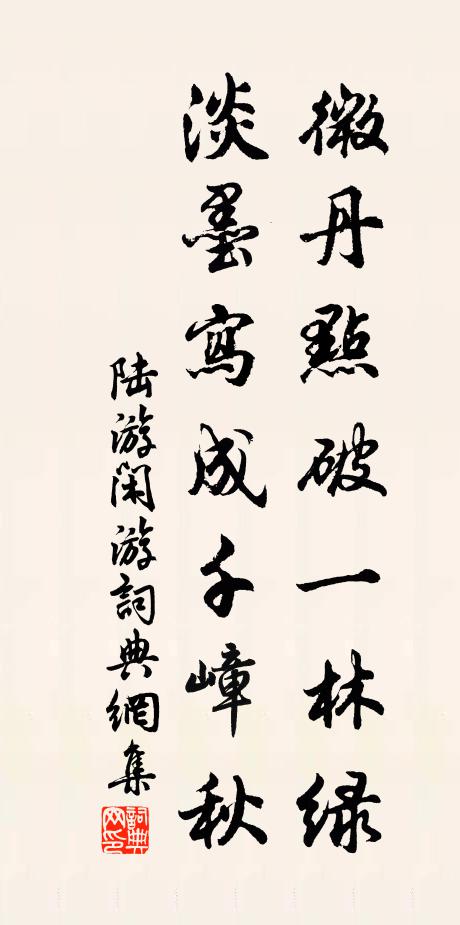 微丹點破一林緑
淡墨寫成千嶂秋
陸游閑游詞典網集
詞典网印